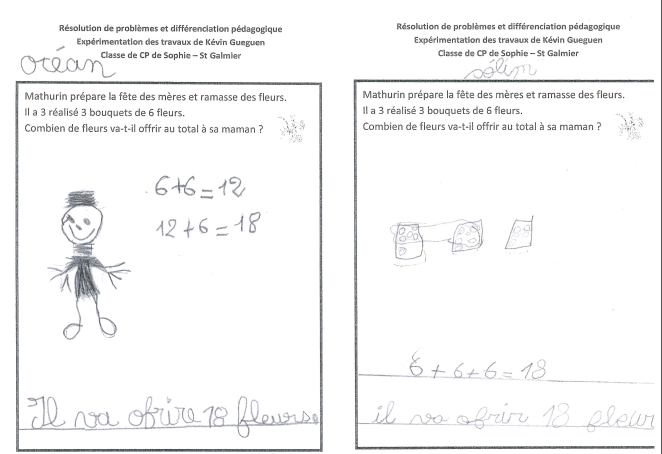 Résolution de problèmes et différenciation pédagogique
Expérimentation des travaux de Kévin Gueguen
Classe de CP de Sophie – St Galmier
océan
Mathurin prépare la fête des mères et ramasse des fleurs.
Il a 3 réalisé 3 bouquets de 6 fleurs.
Combien de fleurs va-t-il offrir au total à sa maman ?
6+6=12
12+6=18
Il va ofrire 18 fleurse
Résolution de problèmes et différenciation pédagogique
Expérimentation des travaux de Kévin Gueguen
Classe de CP de Sophie – St Galmier
sélim
Mathurin prépare la fête des mères et ramasse des fleurs.
Il a 3 réalisé 3 bouquets de 6 fleurs.
Combien de fleurs va-t-il offrir au total à sa maman ?
6+6+6=18
il va ofrir 18 fleur